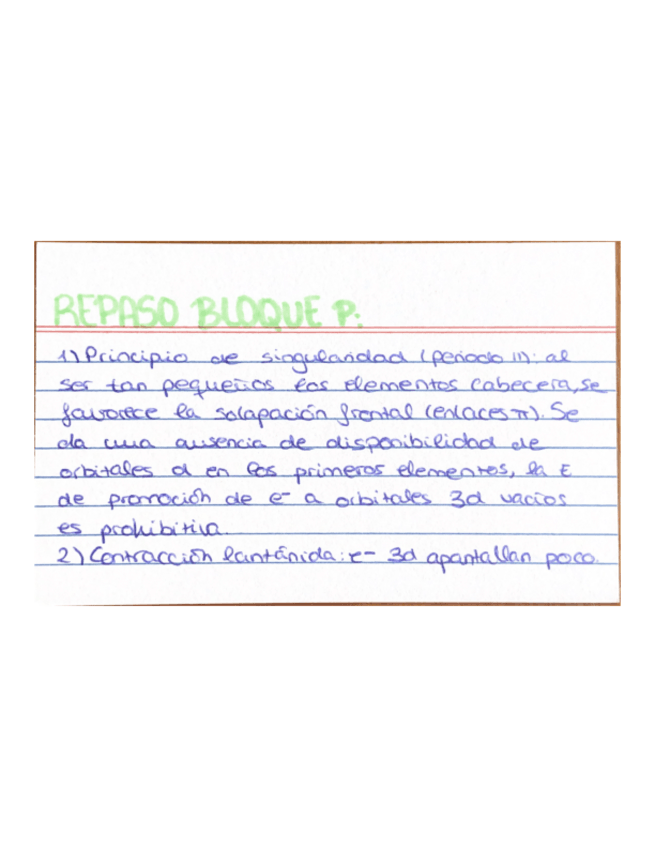 REPASO BLOQUE P:
1) Principio de singularidad (periodo II): al
ser tan pequeños los elementos cabecera, se
favorece la solapación frontal (enlaces π). Se
da una ausencia de disponibilidad de
orbitales d en los primeros elementos, la E
de promoción de e⁻ a orbitales 3d vacíos
es prohibitiva.
2) Contracción lantánida: e⁻ 3d apantallan poco.